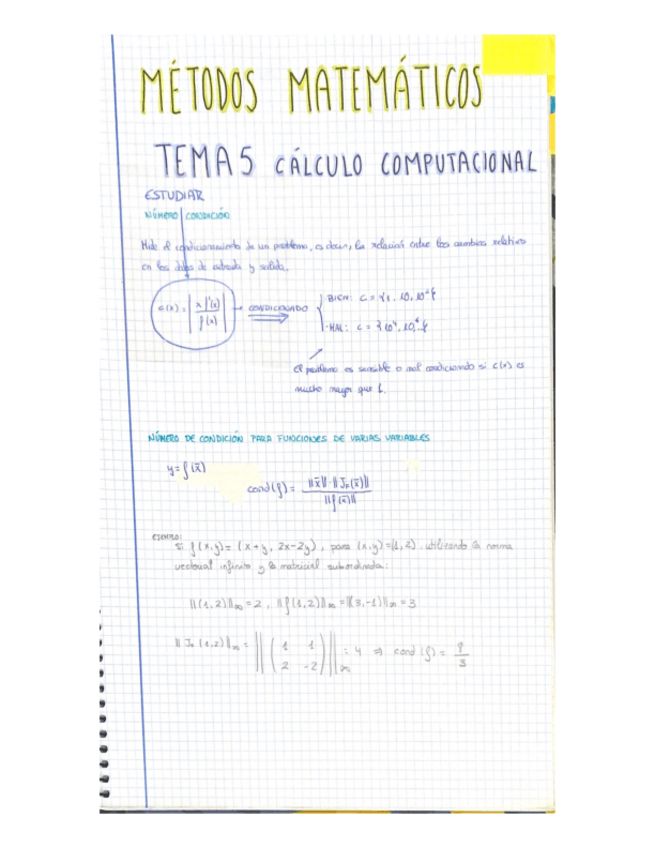 MÉTODOS MATEMÁTICOS
TEMA 5 CÁLCULO COMPUTACIONAL
ESTUDIAR
NÚMERO CONDICIÓN
Mide el condicionamiento de un problema, es decir, la relación entre los cambios relativos
en los datos de entrada y salida.
c(x) = | x f'(x) / f(x) | → CONDICIONADO
· BIEN: c = {1, 10, 10²}
· MAL: c = {10⁴, 10⁶}
El problema es sensible o mal condicionado si c(x) es
mucho mayor que 1.
NÚMERO DE CONDICIÓN PARA FUNCIONES DE VARIAS VARIABLES
y = f(x̄)
cond(f) = ||x̄||·||J_F(x̄)|| / ||f(x̄)||
EJEMPLO:
Si f(x,y) = (x+y, 2x-2y), para (x,y)=(1,2). utilizando la norma
vectorial infinito y la matricial subordinada:
||(1,2)||∞ = 2, ||f(1,2)||∞ = ||(3,-1)||∞ = 3
||J_F(1,2)||∞ = || ( 1 1
2 -2 ) ||∞ = 4 ⇒ cond(f) = 8/3